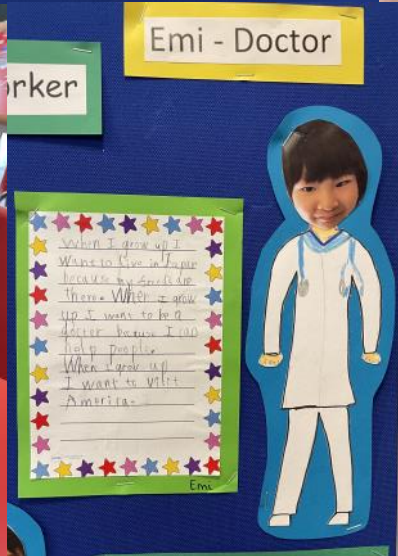 Emi - Doctor
orker
When I grow up I
want to live in Japan
because my
there. When I grow
up I want to be a
docter becuse I can
help people.
When I grow up
I want to visit
America.
Emi